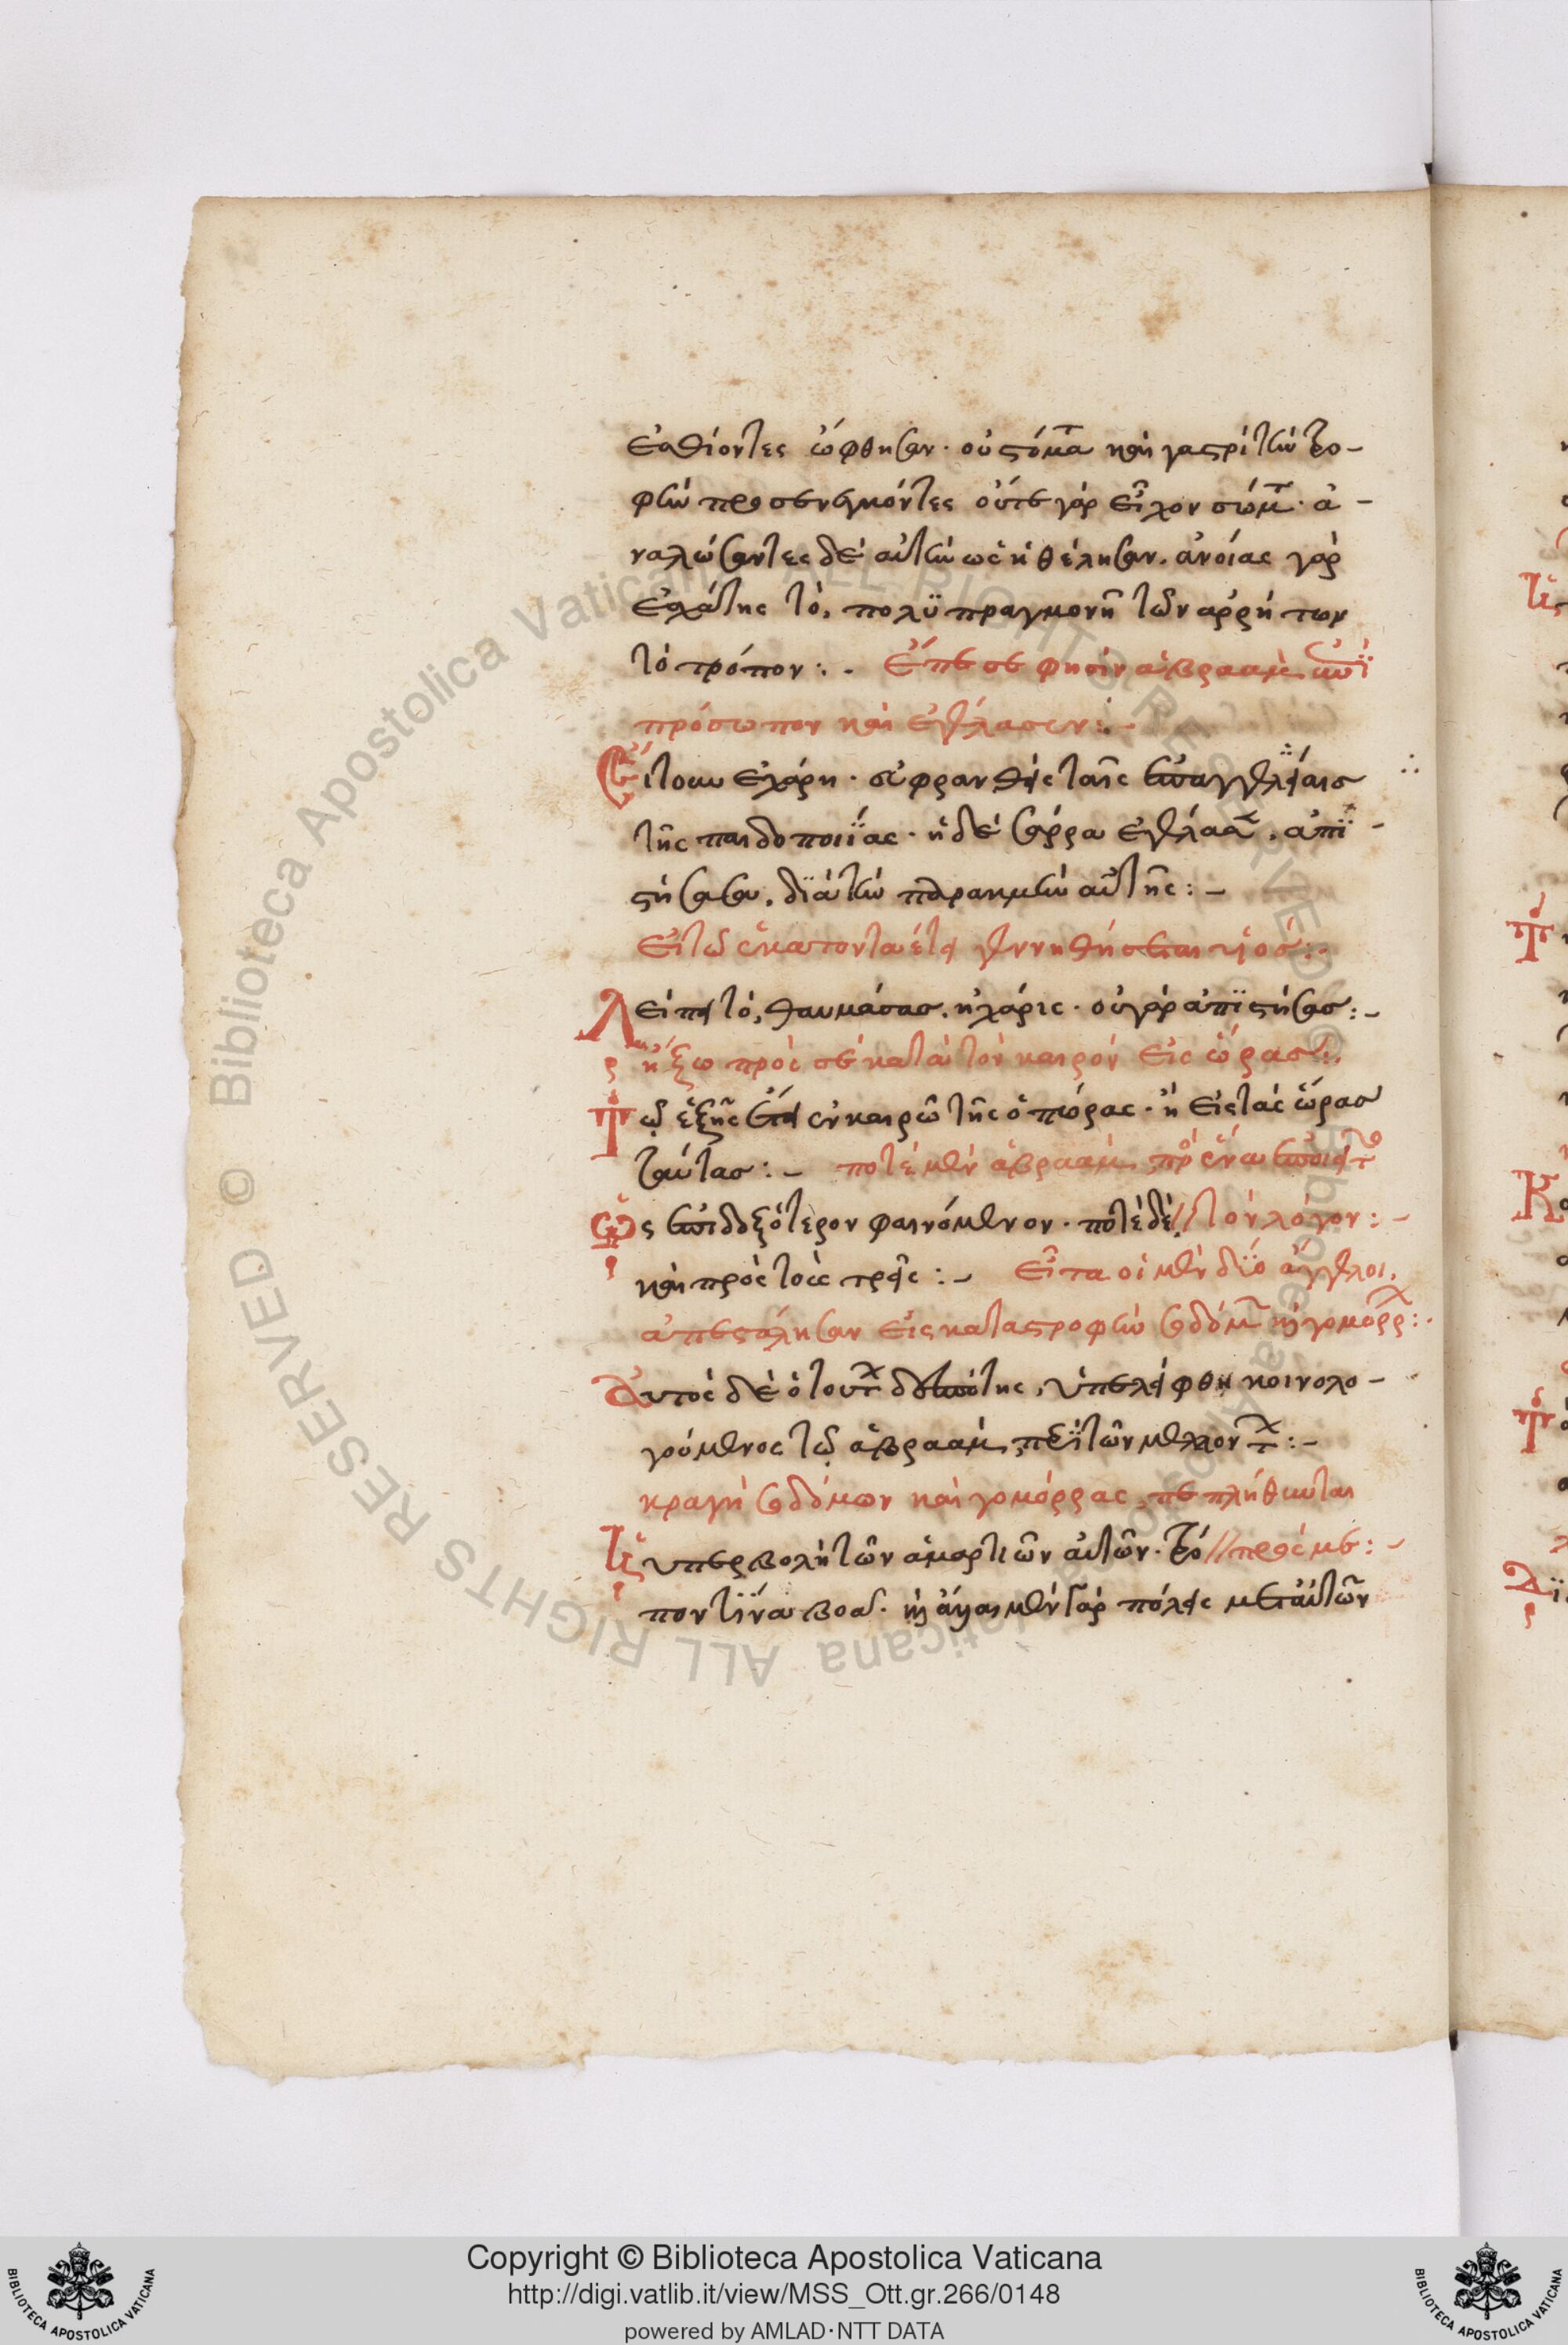 ἐσθίοντες ὤφθησαν· οὐ στόμα καὶ γαστρὶ τὴν τρο-
φὴν προσενεγκόντες οὔτε γὰρ εἶχον σώμ· ἀ-
ναλώσαντες δὲ αὐτὴν ὡς ἠθέλησαν. ἀνοίας γὰρ
ἐσχάτης τὸ, πολϋπραγμονῆ τῶν ἀρρήτων
τὸ τρόπον :. Ἔπεσε φησὶν ἀβραὰμ ἐπὶ
πρόσωπον καὶ ἐγέλασεν :.
Εἴτουν ἐχάρη· εὐφρανθεὶς ταῖς ἐπαγγελείαις
τῆς παιδοποιΐας· ἡ δὲ σάρρα ἐγέλασε, ἀπϊ-
στήσασα. δϊὰ τὴν παρακμὴν αὐτῆς :-
Εἰ τῶ ἑκατονταέτει γεννηθήσεται υἱός :.
Λείπει τὸ, θαυμάσας. ἢ χάρις· οὐ γὰρ ἀπϊστήσας :-
ἥξω πρὸς σὲ κατὰ τὸν καιρὸν εἰς ὥρας :.
Τῷ ἑξῆς ἔτει ἐν καιρῶ τῆς ὀπώρας· ἢ εἰς τὰς ὥρας
ταύτας :- ποτὲ μὲν ἀβραὰμ πρὸ ἕνα ποιεῖτ
Ὡς ἐπιδοξότερον φαινόμενον· ποτὲ δὲ // τὸν λόγον :-
καὶ πρὸς τοὺς τρεῖς :- Εἶτα οἱ μὲν δύο ἄγγελοι,
ἀπεστάλησαν εἰς καταστροφὴν σοδόμ καὶ γομόρρ :.
Αὐτὸς δὲ ὁ τούτ δεσπότης, ὑπελείφθη κοινολο-
γούμενος τῷ ἀβραάμ, περὶ τῶν μελλόντ :-
κραγὴ σοδόμων καὶ γομόρρας, πεπλήθυνται
Τῆς ὑπερβολὴ τῶν ἁμαρτιῶν αὐτῶν. τρό // πρός με :-
πον τϊνὰ βοᾶ. καὶ αὗται μὲν γὰρ πόλεις μετ' αὐτῶν
Copyright © Biblioteca Apostolica Vaticana
http://digi.vatlib.it/view/MSS_Ott.gr.266/0148
powered by AMLAD·NTT DATA